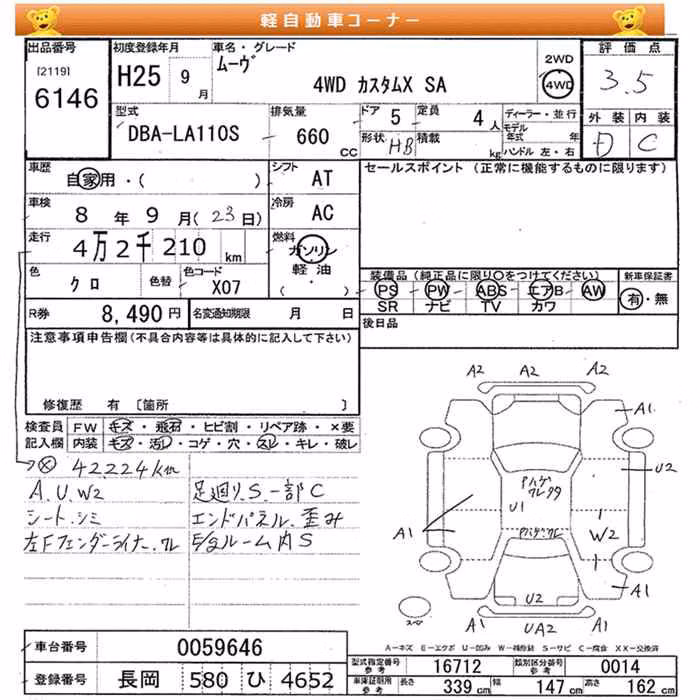 軽自動車コーナー
出品番号
[2119]
6146
初度登録年月
H25 9月
車名・グレード
ムーヴ
4WD カスタムX SA
2WD
4WD
評価点
3.5
外装 内装
D C
型式
DBA-LA110S
排気量
660
CC
ドア 5
定員 4人
形状 HB
積載 kg
ディーラー・並行
モデル年式 年
ハンドル 左・右
車歴
自家用・( )
シフト
AT
セールスポイント (正常に機能するものに限ります)
車検
8年9月(23日)
冷房
AC
走行
4万2千210km
燃料
ガソリン
軽油
( )
色
クロ
色替
色コード
X07
装備品 (純正品に限り○をつけてください)
PS PW ABS エアB AW
SR ナビ TV カワ
新車保証書
有・無
R券 8,490円
名変通知期限 月 日
後日品
注意事項申告欄(不具合内容等は具体的に記入して下さい)
修復歴 有 〔箇所 〕
検査員記入欄
FW キズ・飛石・ヒビ割・リペア跡・×要
内装 キズ・汚れ・コゲ・穴・スレ・キレ・破レ
42,224km
A.U.W2
シート.シミ
左Fフェンダーライナー.ワレ
足廻り.S一部C
エンドパネル.歪み
E/gルーム内S
A2 A2 A2
A1
U2
Pハゲ
ワレ99
U1
Pハゲ.ワレ
A1
W2
U2
A1
A1
UA2
スペア
A-キズ E-エクボ U-凹み W-補修跡 S-サビ C-腐食 XX-交換済
車台番号 0059646
登録番号 長岡 580 ひ 4652
型式指定番号 参考 16712
類別区分番号 参考 0014
車庫証明用 参考
長さ 339cm 幅 147cm 高さ 162cm